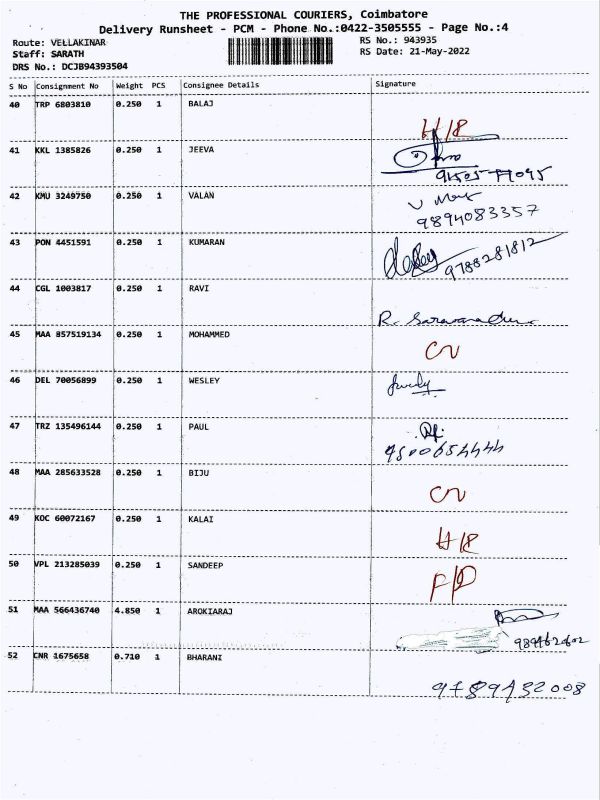 THE PROFESSIONAL COURIERS, Coimbatore
Delivery Runsheet - PCM - Phone No.:0422-3505555 - Page No.:4
Route: VELLAKINAR
Staff: SARATH
DRS No.: DCJB94393504
RS No.: 943935
RS Date: 21-May-2022
S No Consignment No Weight PCS Consignee Details Signature
40 TRP 6803810 0.250 1 BALAJ
H/R
41 KKL 1385826 0.250 1 JEEVA
42 KMU 3249750 0.250 1 VALAN
9894083357
43 PON 4451591 0.250 1 KUMARAN
9788281812
44 CGL 1003817 0.250 1 RAVI
R.
45 MAA 857519134 0.250 1 MOHAMMED
46 DEL 70056899 0.250 1 WESLEY
47 TRZ 135496144 0.250 1 PAUL
9500654444
48 MAA 285633528 0.250 1 BIJU
49 KOC 60072167 0.250 1 KALAI
50 VPL 213285039 0.250 1 SANDEEP
51 MAA 566436740 4.850 1 AROKIARAJ
52 CNR 1675658 0.710 1 BHARANI
9789432008